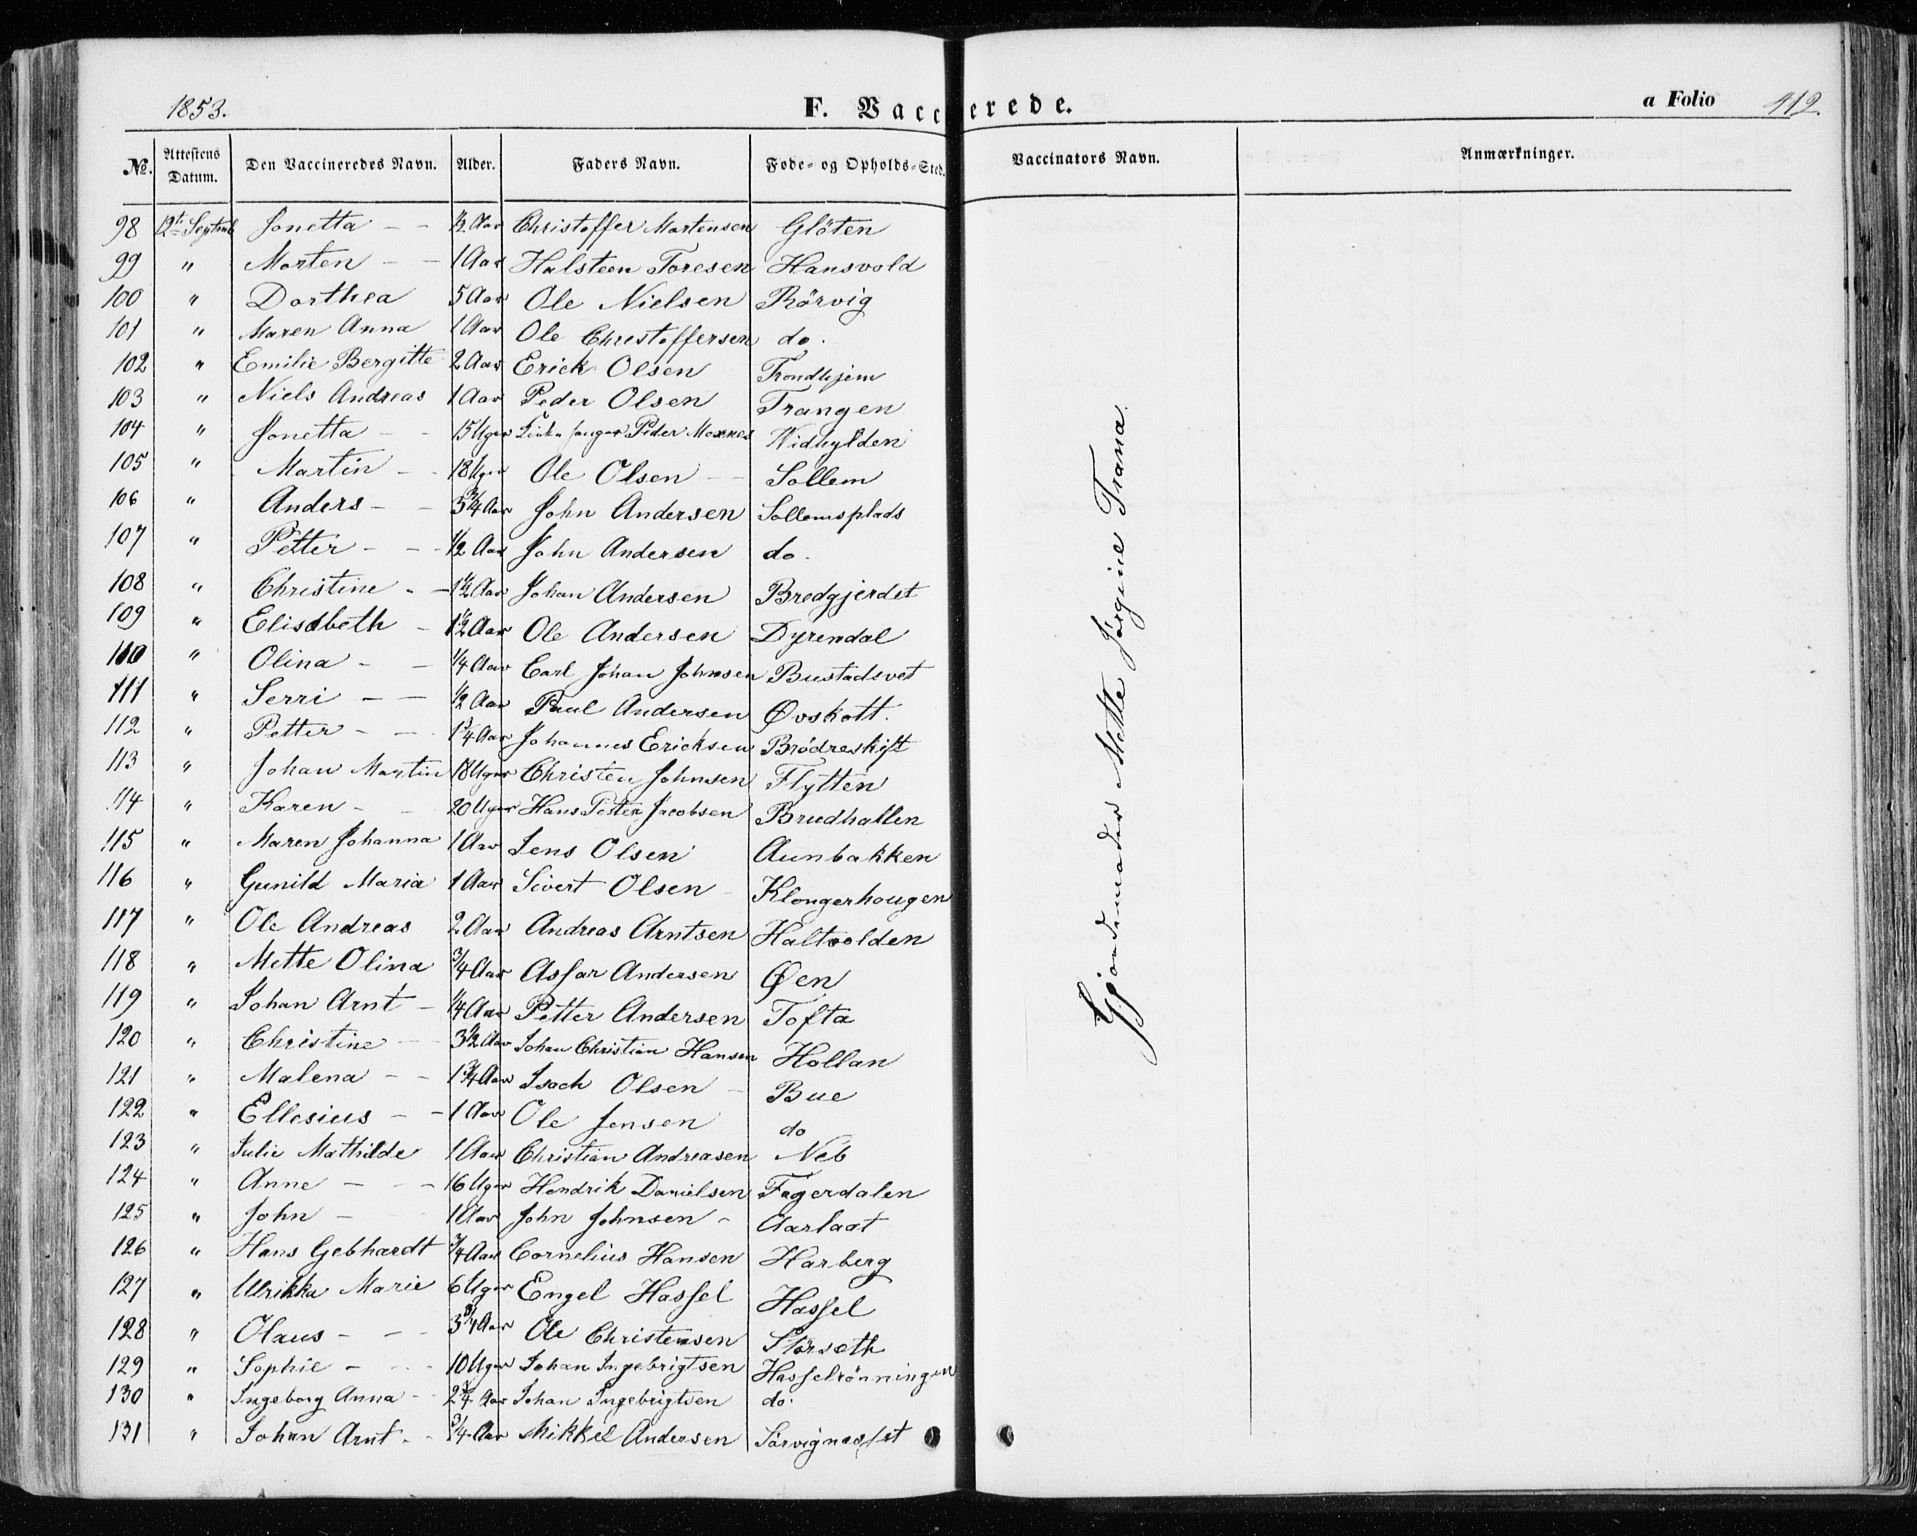 1853.
F. Vaccinerede.
a Folio 412.
No. Attestens Datum. Den Vaccineredes Navn. Alder. Faders Navn. Føde- og Opholds-Sted. Vaccinators Navn. Anmærkninger.
98 12te Septmb Jonetta - - ½ Aar Christoffer Martensen Glöten
99 " Morten - - 1 Aar Halsteen Toresen Hansvold
100 " Dorthea 5 Aar Ole Nielsen Rörvig
101 " Maren Anna 1 Aar Ole Christoffersen do.
102 " Emilie Bergitte 2 Aar Erick Olsen Trondhjem
103 " Niels Andreas 1 Aar Peder Olsen Trangen
104 " Jonetta - - 15 Uger Peder Moxnes Nidhylden
105 " Martin - - 18 Uger Ole Olsen - - Sollem
106 " Anders - - 5¾ Aar John Andersen Sollemsplads
107 " Petter - - ½ Aar John Andersen do.
108 " Christine - - 1½ Aar Johan Andersen Bredgjerdet
109 " Elisabeth - 1½ Aar Ole Andersen Dyrendal
110 " Olina - - ¼ Aar Carl Johan Johnsen Bustadsvet
111 " Serri - - ½ Aar Paul Andersen Øvskott.
112 " Petter - - 1¾ Aar Johannes Ericksen Brödreskift
113 " Johan Martin 18 Uger Christen Johnsen Flytten
114 " Karen - - 20 Uger Hans Petter Jacobsen Brudhallen
115 " Maren Johanna 1 Aar Jens Olsen Aunbakken
116 " Gunild Maria 1 Aar Sivert Olsen - Klongerhougen
117 " Ole Andreas 2 Aar Andreas Arntsen Haltvolden
118 " Mette Olina ¾ Aar Asfar Andersen Øen
119 " Johan Arnt - ¼ Aar Petter Andersen Tofta
120 " Christine - - 3½ Aar Johan Christian Hansen Hollan
121 " Malena - - 1¾ Aar Isach Olsen - Bue
122 " Ellesius - - 1 Aar Ole Jensen do
123 " Julie Mathilde 1 Aar Christian Andreasen Neb
124 " Anne - - 16 Uger Hendrik Danielsen Fagerdalen
125 " John - 1 Aar John Johnsen - Aarlaat
126 " Hans Gebhardt ¾ Aar Cornelius Hansen Harberg
127 " Ulrikka Marie 6 Uger Engel Hassel Hassel
128 " Olaus - - 3¾ Aar Ole Christensen Storseth
129 " Sophie - - 10 Uger Johan Ingebrigtsen Hasselrönningen
130 " Ingeborg Anna - 2¾ Aar Johan Ingebrigtsen do.
131 " Johan Arnt - - ¾ Aar Mikkel Andersen
Gjordemoder Mette Jørgine Trana.